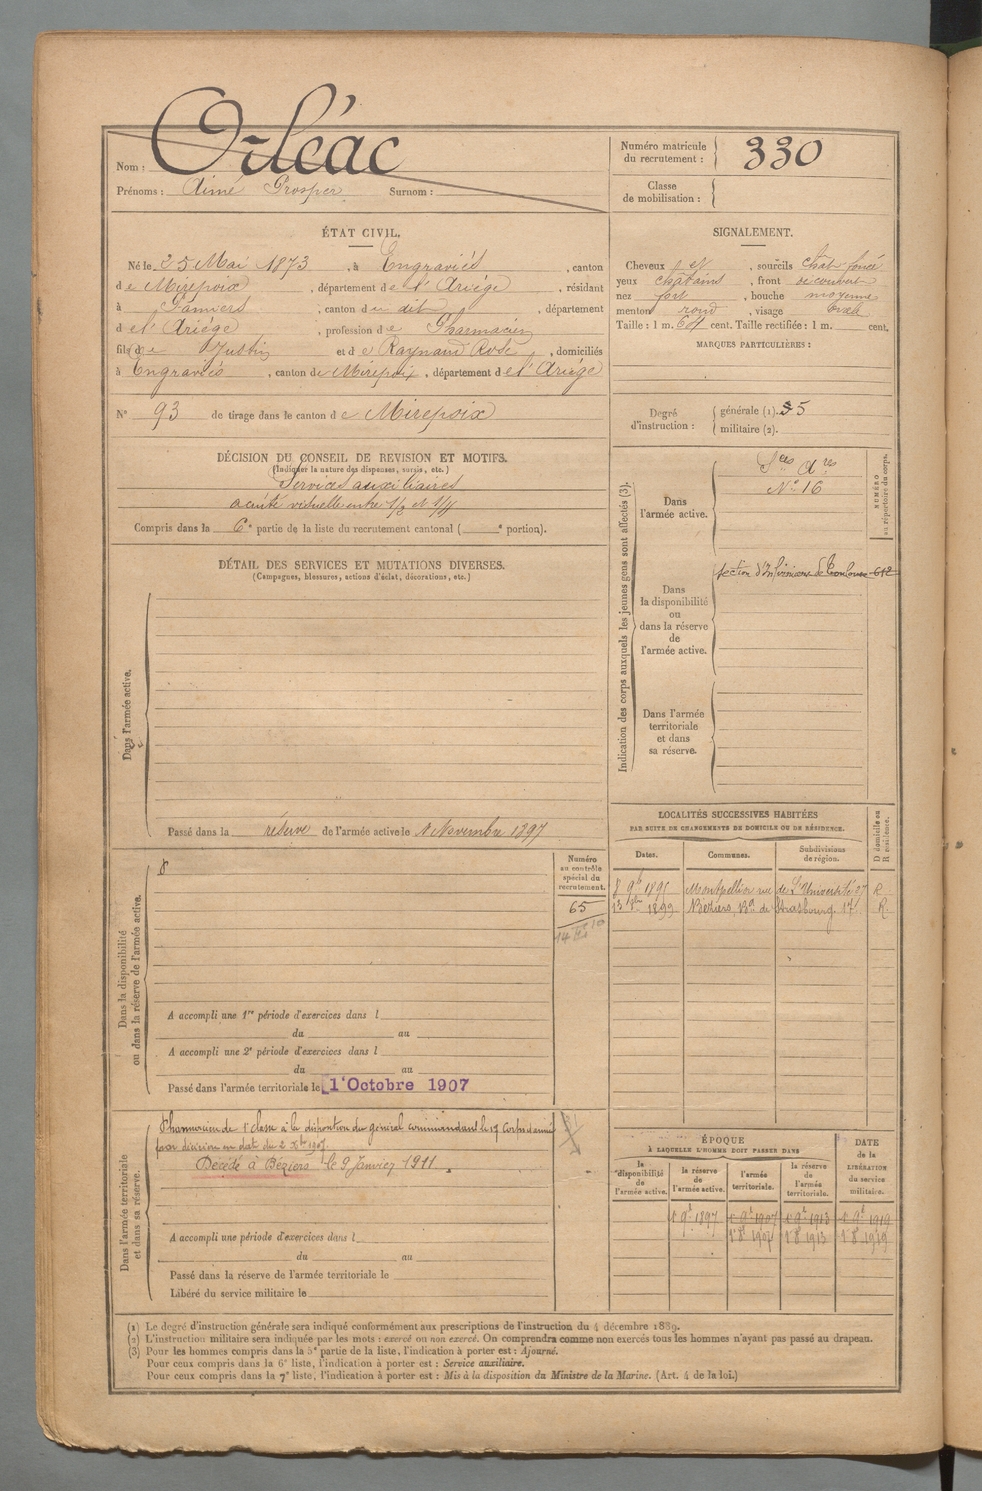 Nom : Orléac
Prénoms : Aimé Prosper Surnom :
Numéro matricule du recrutement : 330
Classe de mobilisation :
ÉTAT CIVIL.
Né le 25 Mai 1873, à Engraviès, canton
de Mirepoix, département de l'Ariège, résidant
à Pamiers, canton du dit, département
de l'Ariège, profession de Pharmacien
fils de Justin et de Raynaud Rose, domiciliés
à Engraviès, canton de Mirepoix, département de l'Ariège
N° 93 de tirage dans le canton de Mirepoix
SIGNALEMENT.
Cheveux et, sourcils chât. foncé
yeux châtains, front découvert
nez fort, bouche moyenne
menton rond, visage ovale
Taille : 1 m. 601 cent. Taille rectifiée : 1 m. cent.
MARQUES PARTICULIÈRES :
Degré d'instruction : générale (1). 5
militaire (2).
DÉCISION DU CONSEIL DE REVISION ET MOTIFS.
(Indiquer la nature des dispenses, sursis, etc.)
Services auxiliaires
acuité visuelle entre 1/2 et 1/4
Compris dans la 6e partie de la liste du recrutement cantonal ( e portion).
DÉTAIL DES SERVICES ET MUTATIONS DIVERSES.
(Campagnes, blessures, actions d'éclat, décorations, etc.)
Dans l'armée active.
Passé dans la réserve de l'armée active le 1 Novembre 1897
Indication des corps auxquels les jeunes gens sont affectés (3).
Dans l'armée active.
Sces Ares
N° 16
NUMÉRO au répertoire du corps.
Dans la disponibilité ou dans la réserve de l'armée active.
Section d'Infirmiers de Toulouse 612
Dans l'armée territoriale et dans sa réserve.
LOCALITÉS SUCCESSIVES HABITÉES
PAR SUITE DE CHANGEMENTS DE DOMICILE OU DE RÉSIDENCE.
Dates. Communes. Subdivisions de région. D domicile ou R résidence.
8 9b 1895 Montpellier rue de l'Université 27 R
13 1899 Béziers, Bd de Strasbourg. 17. R.
Dans la disponibilité ou dans la réserve de l'armée active.
Numéro au contrôle spécial du recrutement.
65
A accompli une 1re période d'exercices dans l
du au
A accompli une 2e période d'exercices dans l
du au
Passé dans l'armée territoriale le 1er Octobre 1907
Dans l'armée territoriale et dans sa réserve.
Pharmacien de 1e classe à la disposition du général commandant le 17 Corps d'armée
par décision en date du 2 Xbre 1907.
Décédé à Béziers le 9 Janvier 1911.
A accompli une période d'exercices dans l
du au
Passé dans la réserve de l'armée territoriale le
Libéré du service militaire le
ÉPOQUE
À LAQUELLE L'HOMME DOIT PASSER DANS
la disponibilité de l'armée active. la réserve de l'armée active. l'armée territoriale. la réserve de l'armée territoriale. DATE de la LIBÉRATION du service militaire.
1er 9b 1897 1er 9b 1907 1er 9b 1913 1er 9b 1919
1er 8b 1907 1er 8b 1913 1er 8b 1919
(1) Le degré d'instruction générale sera indiqué conformément aux prescriptions de l'instruction du 4 décembre 1889.
(2) L'instruction militaire sera indiquée par les mots : exercé ou non exercé. On comprendra comme non exercés tous les hommes n'ayant pas passé au drapeau.
(3) Pour les hommes compris dans la 5e partie de la liste, l'indication à porter est : Ajourné.
Pour ceux compris dans la 6e liste, l'indication à porter est : Service auxiliaire.
Pour ceux compris dans la 7e liste, l'indication à porter est : Mis à la disposition du Ministre de la Marine. (Art. 4 de la loi.)